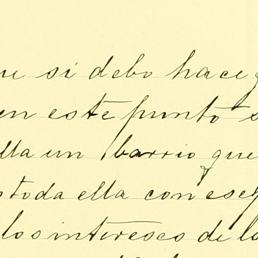 ue si debo hace
en este punto s
lla un barrio que
toda ella con ese
los intereses de la